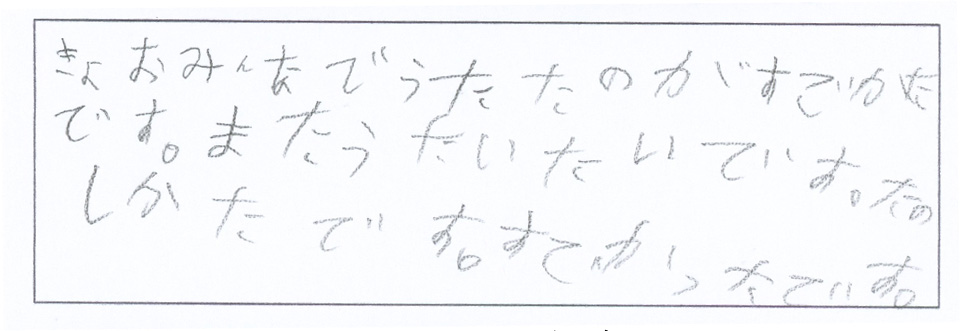 きょおみんなでうたたのがすでかた
です。またうたいたいでいす。たの
しかたでです。すでかったでいす。